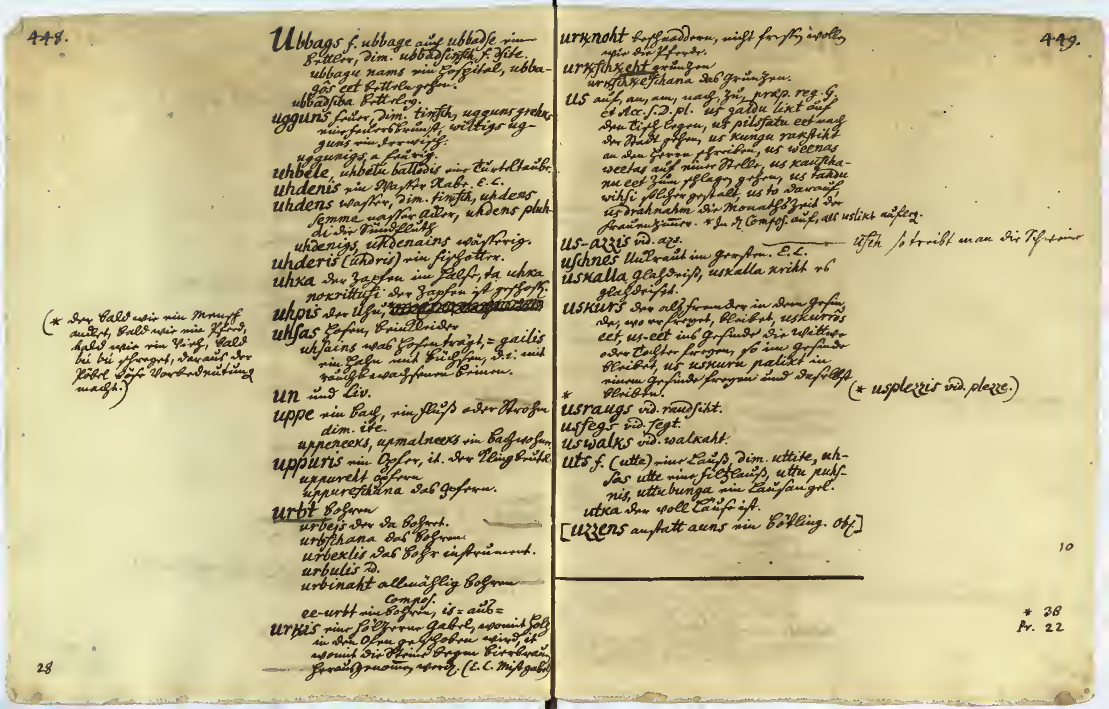 448.
Ubbags f. ubbage auch ubbadse ein
Bettler, dim. ubbadsinsch f. dsite.
ubbagu nams ein Hospital, ubba-
gôs eet betteln gehen.
ubbadsiba Betteley.
ugguns feuer, dim. tinsch, ugguns grehks
eine feuersbrunst, wiltigs ug-
guns ein Irrwisch.
uggunigs, a feurig.
uhbele, uhbelu ballodis eine Turteltaube.
uhdenis ein Wasser Rabe. E. L.
uhdens wasser, dim. tinsch, uhdens
semme wasser Ader, uhdens pluh-
di der Sündfluth
uhdenigs, uhdenains wässerig.
uhderis (uhdris) ein fischotter.
uhka der Zapfen im Halse, ta uhka
nokrittusi der Zapfen ist geschoss.
uhpis der Uhu,
(* der bald wie ein Mensch
bald wie ein Pferd,
bald wie ein Vieh, bald
bu bu schreyet, daraus der
Pöbel böse Vorbedeutung
macht.)
uhsas Hosen, beinkleider
uhsains was Hosen trägt, = gailis
ein Hahn mit Büchsen, d. i. mit
rauch bewachsenen beinen.
un und Liv.
uppe ein bach, ein fluß oder Strohm
dim. ite.
uppeneeks, upmalneeks ein bachwohner
uppuris ein Opfer, it. der Klingbeutel
uppureht opfern
uppureschana das Opfern.
urbt bohren
urbejs der da bohret.
urbschana das bohren.
urbeklis das bohr instrument.
urbulis id.
urbinaht allmählig bohren
Compos.
ee-urbt einbohren, is= aus=
urkis eine hölzerne Gabel, womit holz
in den Ofen geschoben wird, it
womit die Steine beym bierbrauen
herausgenommen werd. (E. L. Mistgabel)
28
449.
urknoht nicht fressen wollen
wie die Pferde.
urkschkeht grunzen
urkschkeschana das Grunzen.
us auf, an, am, nach, zu, præp. reg. G.
et Acc. s. D. pl. us galdu likt auf
den tisch legen, us pilsfatu eet nach
der Stadt gehen, us kungu rakstiht
an den Herrn schreiben, us weenas
weetas auf einer Stelle, us kauscha-
nu eet zum schlagen gehen, us tahdu
wihsi solcher gestalt, us to darauf,
us drahnahm die Monaths Zeit der
frauenzimmer. * In Compos. auf, als uslikt aufleg.
us-azzis vid. azs.
usch so treibt man die Schweine
uschnes Unkraut im gersten. E. L.
uskalla glahdeiß, uskalla kriht es
glahdeiset.
uskurs der als fremder in dem Gesin-
de, wo er freyet, bleibet, uskurrôs
eet, us-eet ins Gesinde die wittwe
oder Tochter freyen, so im Gesinde
bleibet, us uskuru palikt in
einem Gesinde freyen und daselbst
* bleiben.
(* usplezzis vid. plezze.)
usraugs vid. raudsiht.
usfegs vid. segt.
uswalks vid. walkaht.
uts f. (utte) eine Lauß, dim. uttite, uh-
sas utte eine filzlauß, uttu puhs-
nis, uttubunga ein Lausangel.
utka der voll Läuse ist.
[uzzens anstatt auns ein bötling. Obs]
10
* 38
Pr. 22